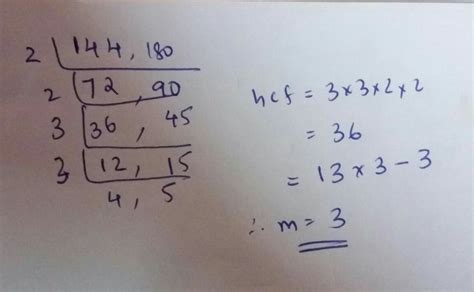 2 | 144, 180
2 | 72, 90
3 | 36, 45
3 | 12, 15
4, 5
hcf = 3×3×2×2
= 36
= 13×3-3
∴ m = 3